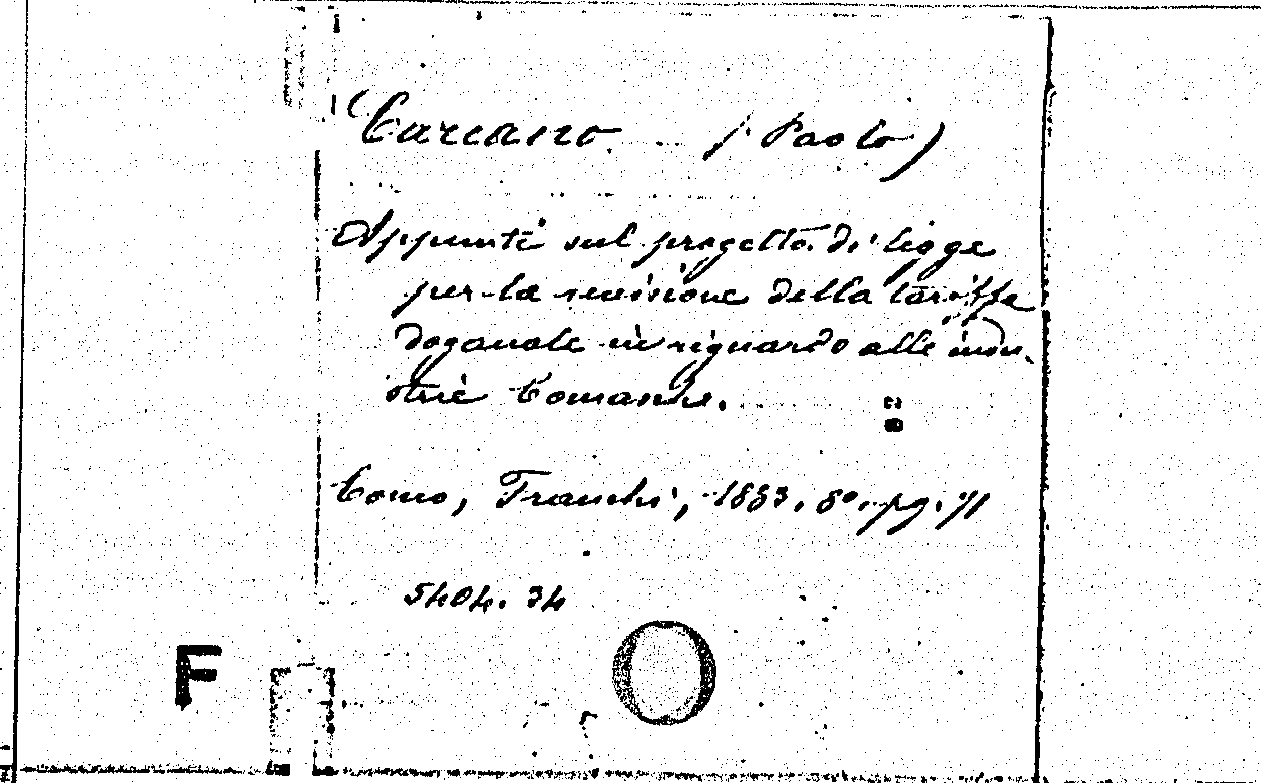 Carcano (Paolo)
Appunti sul progetto di legge
per la revisione della tariffa
doganale in riguardo alle indu-
strie Comasche.
Como, Franchi, 1883. 8°. pg. 71
5404. 34
F